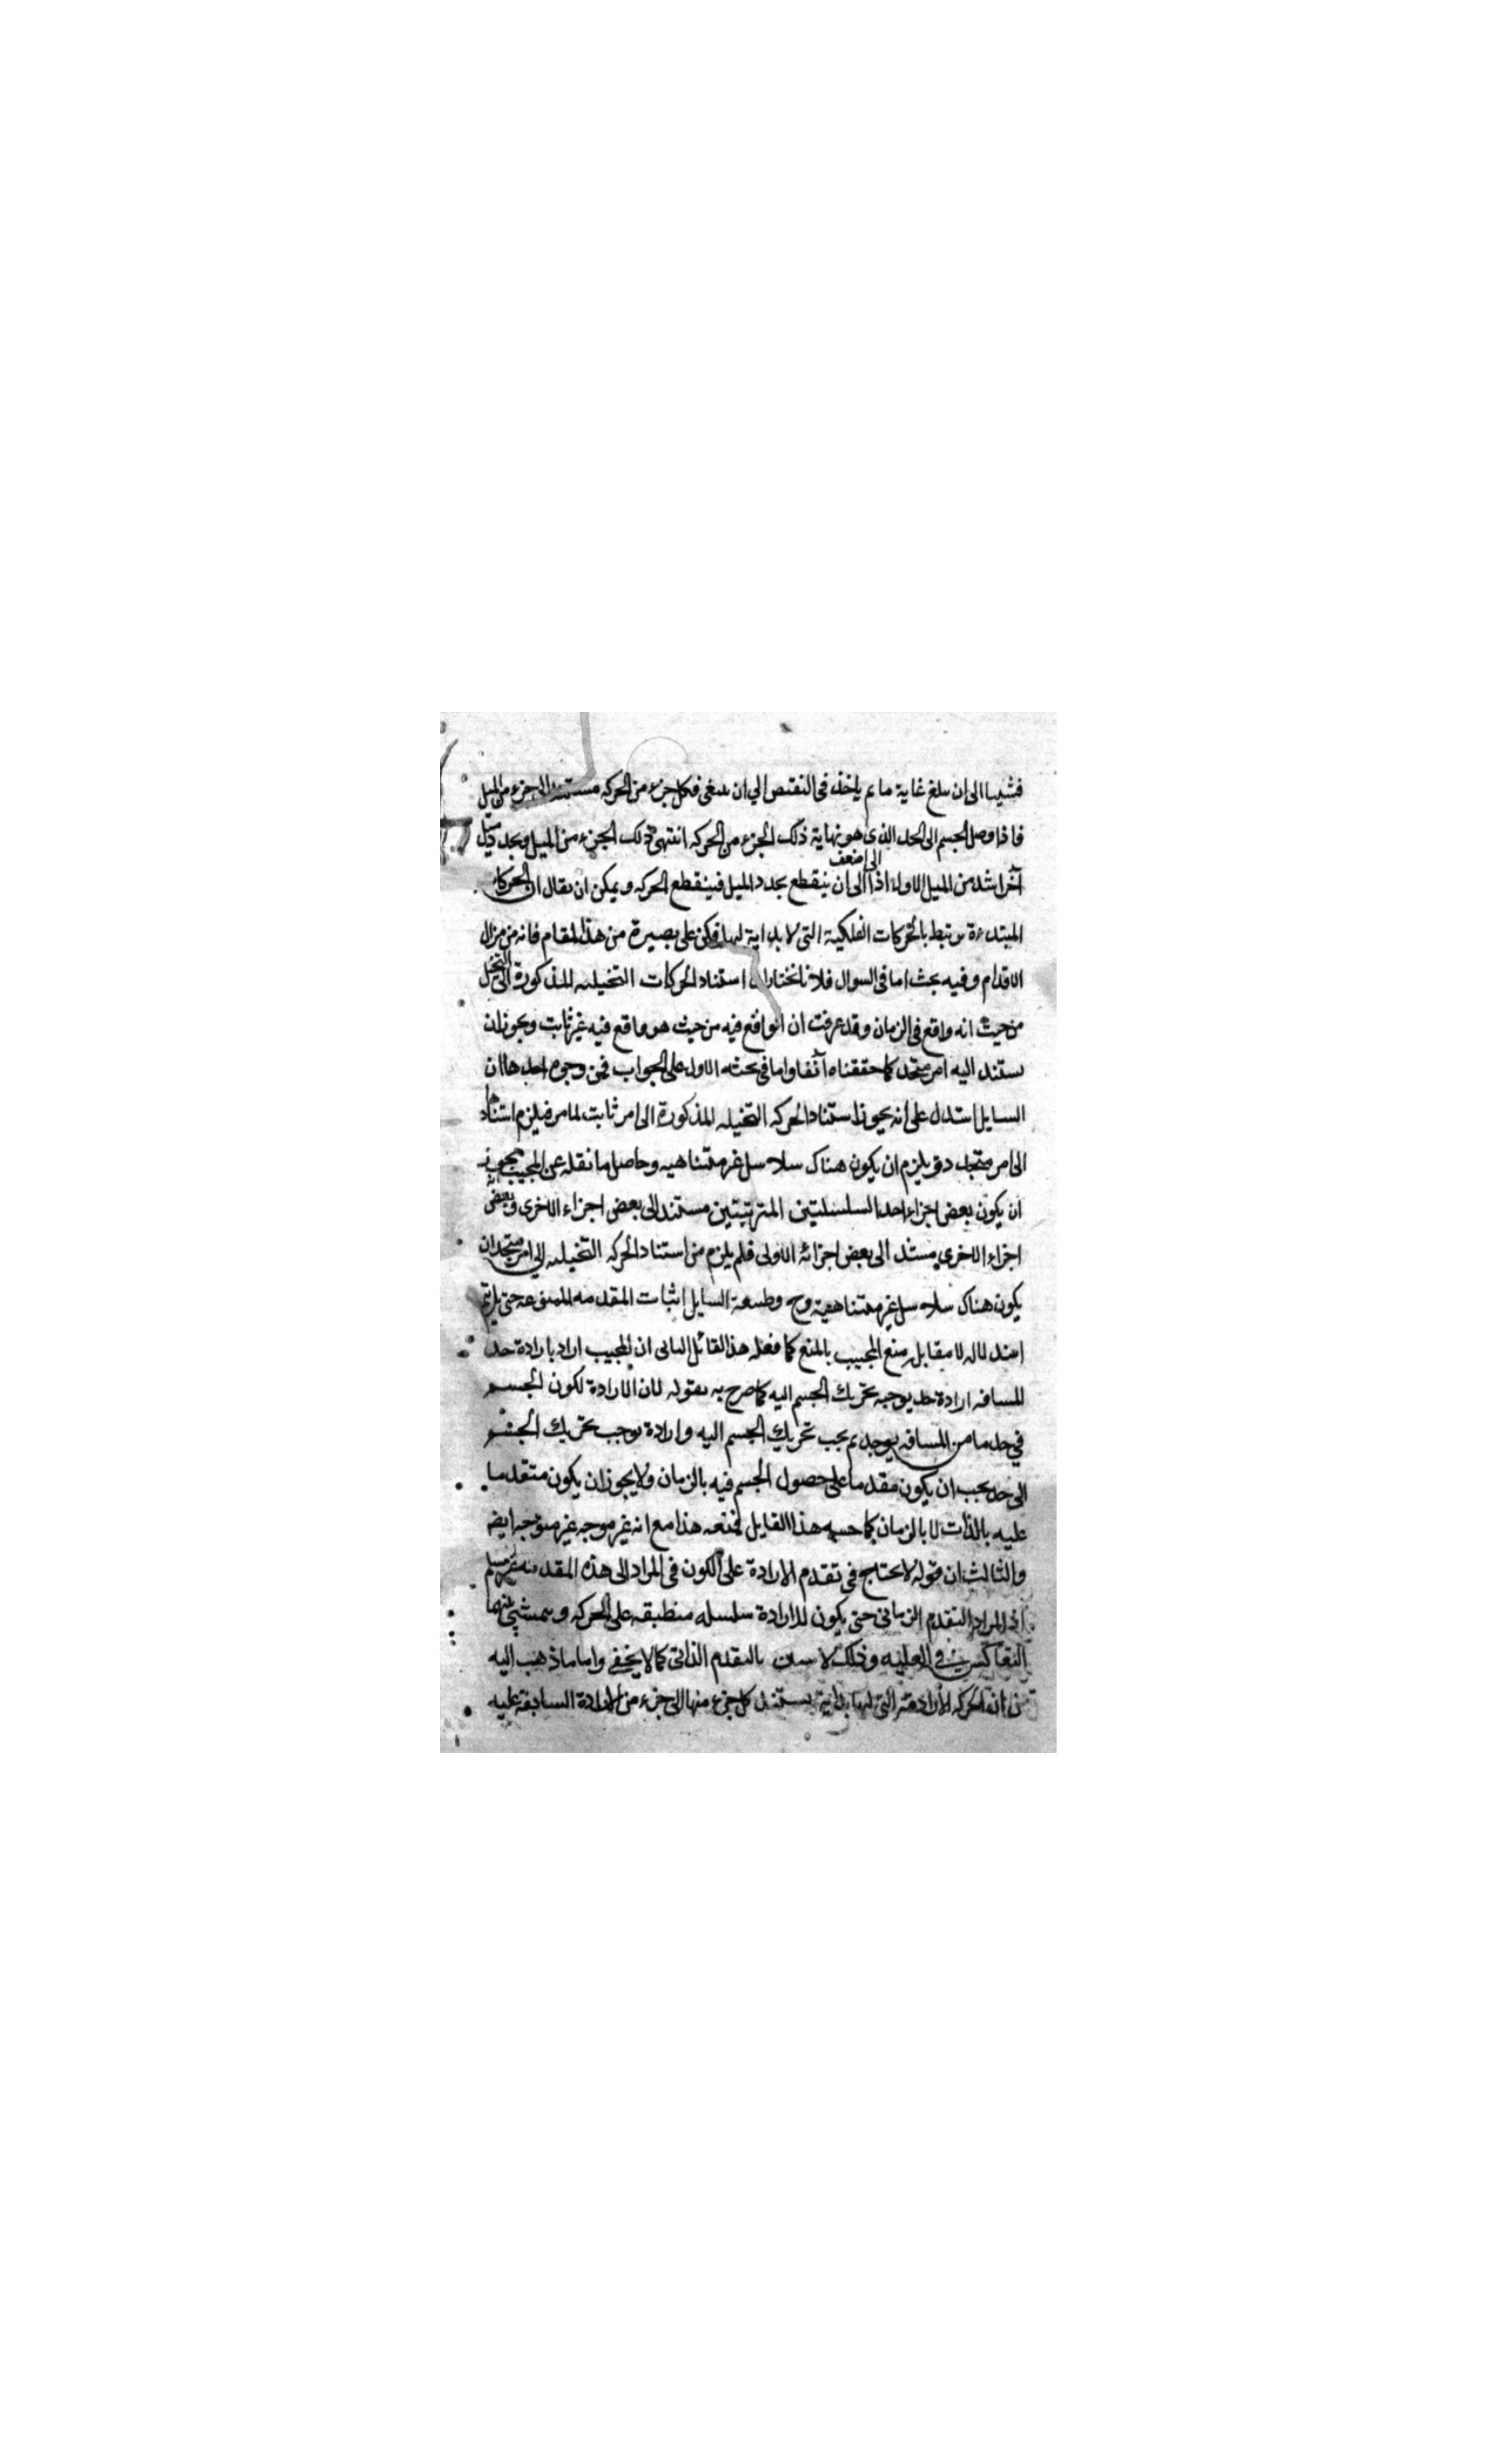 فشيئا الى ان يبلغ غاية ما ثم ياخذ في التنقص الي ان ينتفي فكل جزء من الحركه مستند الى جزء من الميل
فاذا وصل الجسم الى الحد الذي هو نهاية ذلك الجزء من الحركه انتهى ذلك الجزء من الميل وتجدد ميل
آخر اشد من الميل الاول الى اضعف اذا الى ان ينقطع تجدد الميل فينقطع الحركه ويمكن ان يقال ان الحركات
المبتدءة مرتبط بالحركات الفلكية التي لا بداية لها فكن على بصيرة من هذا المقام فانه من مزال
الاقدام وفيه بحث اما في السوال فلانا نختار ان استناد الحركات التخيليه المذكورة الى التخيل
من حيث انه واقع في الزمان وقد عرفت ان الواقع فيه من حيث هو واقع فيه غير ثابت ويجوز ان
يستند اليه امر متجدد كما حققناه آنفا واما في بحثه الاول على الجواب فمن وجوه احدها ان
السايل استدل على انه يجوز استناد الحركه التخيليه المذكورة الى امر ثابت لما مر فيلزم استنادها
الى امر متجدد فيلزم ان يكون هناك سلاسل غير متناهيه وحاصل ما نقله عن المجيب تجويز
ان يكون بعض اجزاء احد السلسلتين المترتبتين مستند الى بعض اجزاء الاخرى وبعض
اجزاء الاخرى مستند الى بعض اجزائه الاولى فلم يلزم من استناد الحركه التخيليه الى امر متجدد ان
يكون هناك سلاسل غير متناهية وح وظيفة السايل اثبات المقدمه الممنوعه حتى يتم
استدلاله لا مقابل منع المجيب بالمنع كما فعله هذا القائل الثاني ان المجيب اراد بارادة حد
للمسافه ارادة حد يوجبه تحريك الجسم اليه كما صرح به بقوله لان الارادة لكون الجسم
في حد ما من المسافه يوجد ثم يجب تحريك الجسم اليه وارادة توجب تحريك الجسم
الى حد يجب ان يكون مقدما على حصول الجسم فيه بالزمان ولا يجوز ان يكون متقدما
عليه بالذات لا بالزمان كما حسبه هذا القايل فمنعه هذا مع انه غير موجه غير متوجه ايضه
والثالث ان قوله لا يحتاج في تقدم الارادة على الكون في المراد الى هذه المقدمه غير مسلم
اذ المراد التقدم الزماني حتى يكون للارادة سلسله منطبقه على الحركه ويتمشى بينهما
التعاكس في العليه وذلك لا بالتقدم الذاتي كما لا يخفى واما ما ذهب اليه
من ان الحركه الارادية التي لها بداية يستند كل جزء منها الى جزء من الارادة السابقة عليه